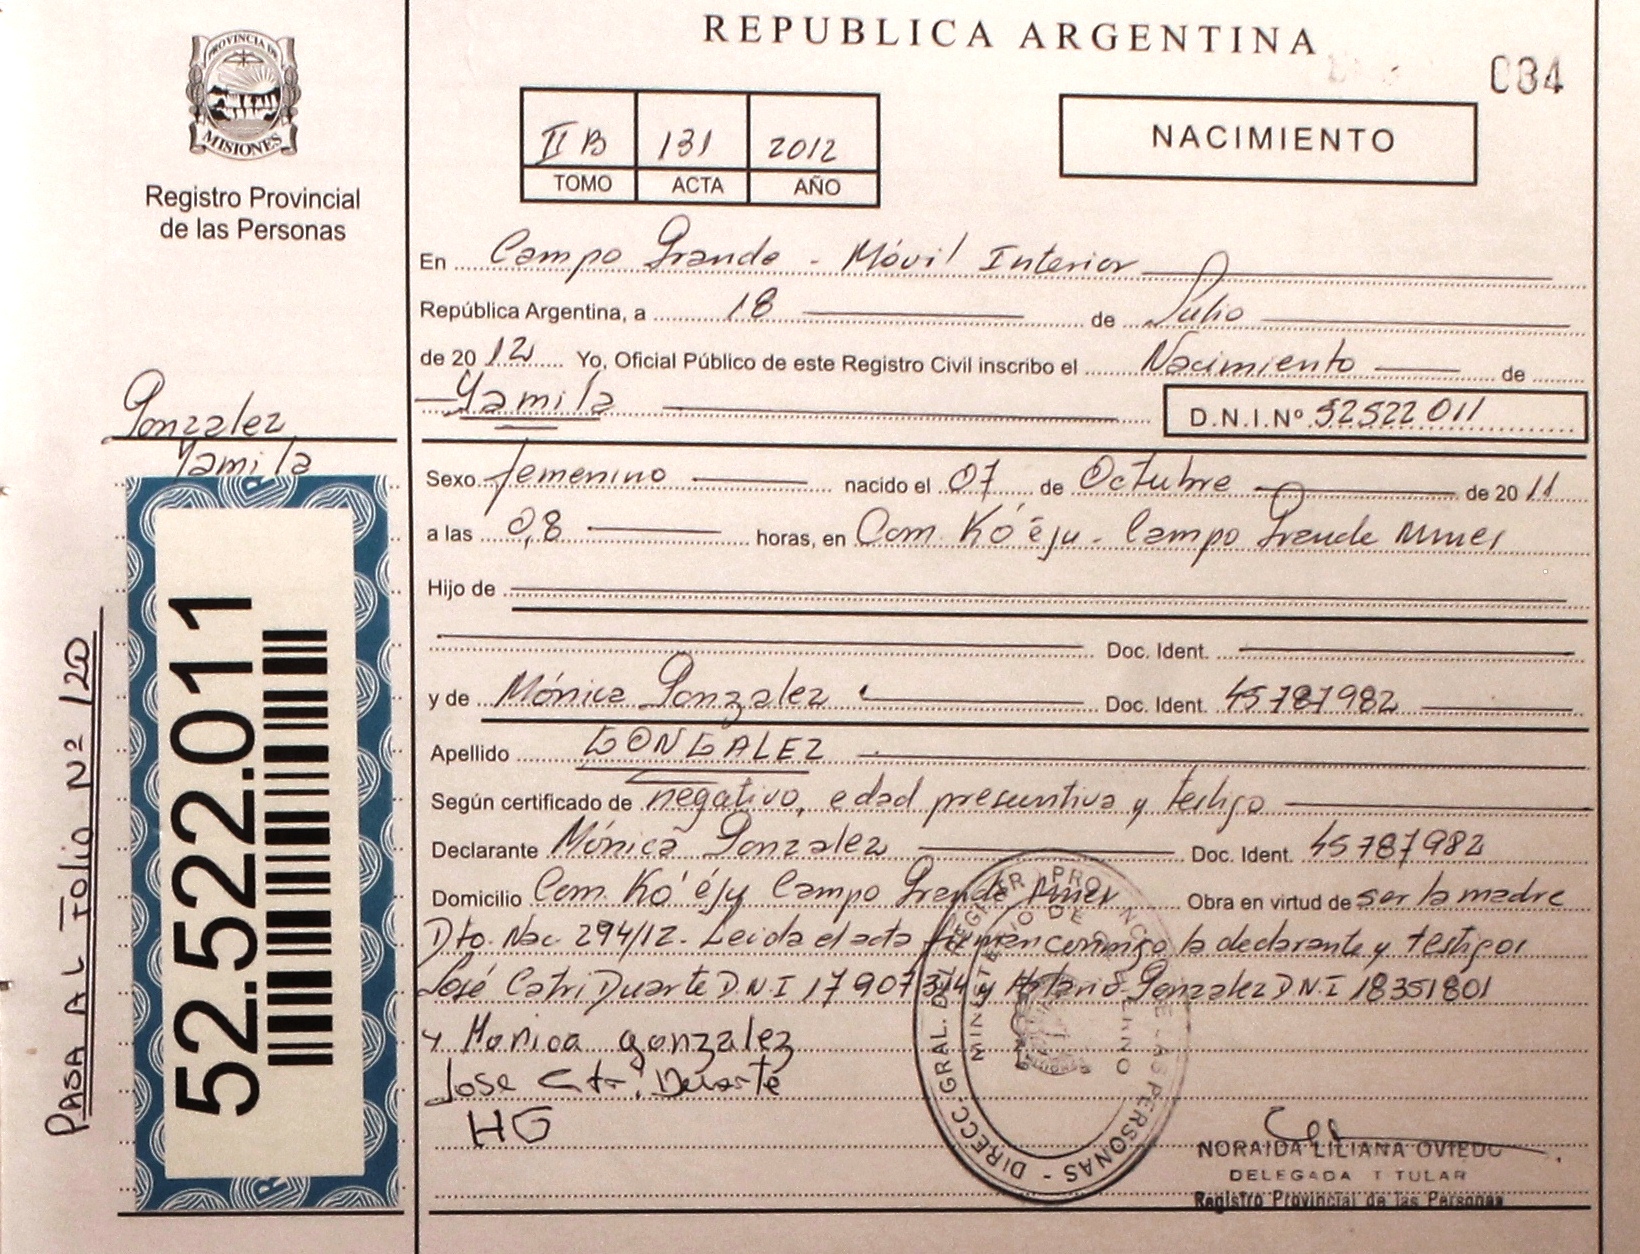 PROVINCIA DE
MISIONES
Registro Provincial
de las Personas
REPUBLICA ARGENTINA
034
II B 131 2012
TOMO ACTA AÑO
NACIMIENTO
En Campo Grande - Móvil Interior
República Argentina, a 18 de Julio
de 2012 Yo, Oficial Público de este Registro Civil inscribo el Nacimiento de
Yamila D.N.I.Nº 52522011
Gonzalez
Yamila
Sexo femenino nacido el 07 de Octubre de 2011
a las 0,8 horas, en Com. Ko'éju - Campo Grande Mnes
Hijo de
Doc. Ident.
y de Mónica Gonzalez Doc. Ident. 45787982
Apellido GONZALEZ
Según certificado de negativo, edad presuntiva y testigo
Declarante Mónica Gonzalez Doc. Ident. 45787982
Domicilio Com. Ko'éju Campo Grande Mnes Obra en virtud de ser la madre
Dto. Nac. 294/12. Leida el acta firman conmigo la declarante y testigos
José Catri Duarte D.N.I 17907314 y Gonzalez D.N.I 18351801
y Monica gonzalez
Jose Duarte
HG
52.522.011
PASA AL FOLIO Nº 120
DIRECC. GRAL. DE REGISTR. PROVINC. DE LAS PERSONAS
MINISTERIO DE GOBIERNO
NORAIDA LILIANA OVIEDO
DELEGADA TITULAR
Registro Provincial de las Personas